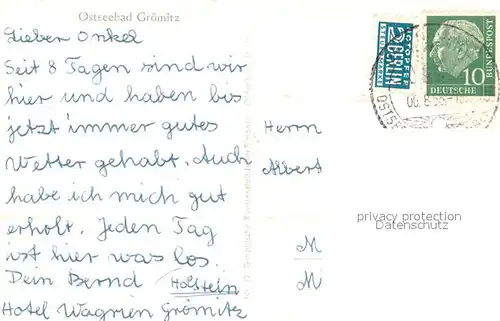 Ostseebad Grömitz
Lieber Onkel
Seit 8 Tagen sind wir
hier und haben bis
jetzt immer gutes
Wetter gehabt. Auch
habe ich mich gut
erholt. Jeden Tag
ist hier was los.
Dein Bernd
Holstein
Hotel Wagrien Grömitz
Herrn
Albert
M
M
NOTOPFER
2 BERLIN
STEUERMARKE
10
DEUTSCHE
BUNDESPOST
privacy protection
Datenschutz